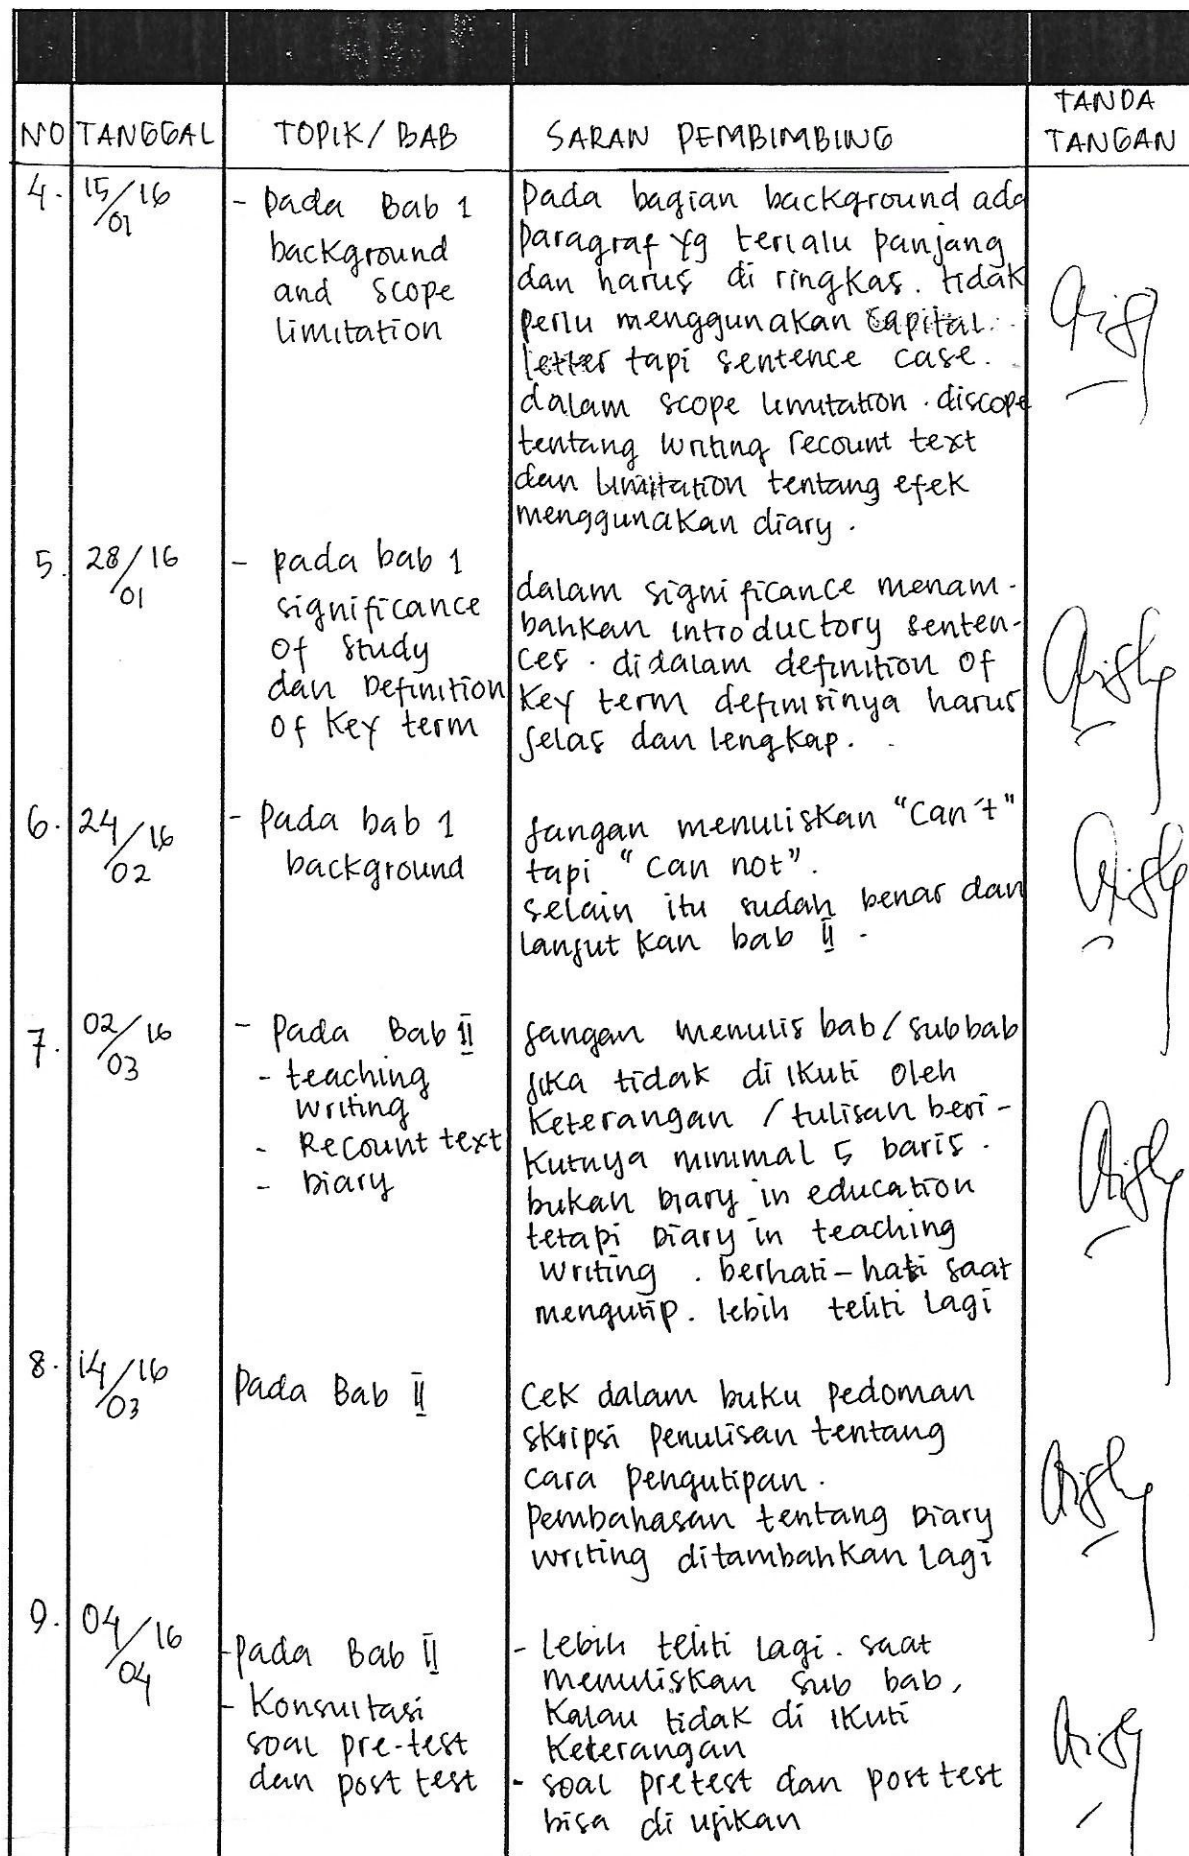 NO TANGGAL TOPIK/BAB SARAN PEMBIMBING TANDA TANGAN
4. 15/01 16
- Pada Bab 1
background
and scope
limitation
Pada bagian background ada
paragraf yg terlalu panjang
dan harus di ringkas. tidak
perlu menggunakan capital
letter tapi sentence case.
dalam scope limitation. discope
tentang writing recount text
dan limitation tentang efek
menggunakan diary.
5. 28/01 16
- pada bab 1
significance
of study
dan Definition
of Key term
dalam significance menam-
bahkan introductory senten-
ces. didalam definition of
key term definisinya harus
jelas dan lengkap.
6. 24/02 16
- Pada bab 1
background
Jangan menuliskan "Can't"
tapi "can not".
selain itu sudah benar dan
lanjut kan bab II.
7. 02/03 16
- Pada Bab II
- teaching
writing
- Recount text
- Diary
Jangan menulis bab/subbab
jika tidak di ikuti oleh
keterangan / tulisan beri-
kutnya minimal 5 baris.
bukan Diary in education
tetapi Diary in teaching
writing. berhati-hati saat
mengutip. lebih teliti lagi
8. 14/03 16
Pada Bab II
Cek dalam buku pedoman
skripsi penulisan tentang
cara pengutipan.
Pembahasan tentang Diary
writing ditambahkan lagi
9. 04/04 16
- Pada Bab II
- Konsultasi
soal pre-test
dan post test
- lebih teliti lagi. saat
menuliskan sub bab,
kalau tidak di ikuti
keterangan
- soal pretest dan post test
bisa di ujikan